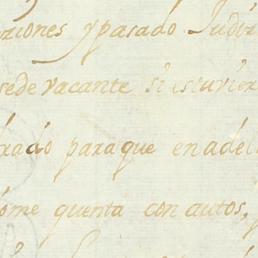 ciones y pasado Judi
sede vacante si estuvier
rado para que en adel
ome quenta con autos,